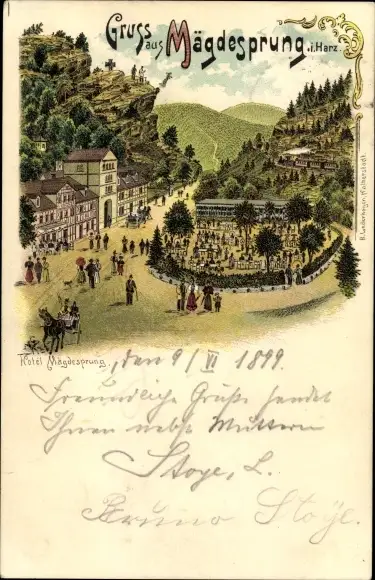 Gruss aus Mägdesprung i. Harz.
Hotel Mägdesprung, den 9/VI 1899.
Freundliche Grüße sendet
Ihnen nebst Muttern
Stoye, L.
Bruno Stoye.